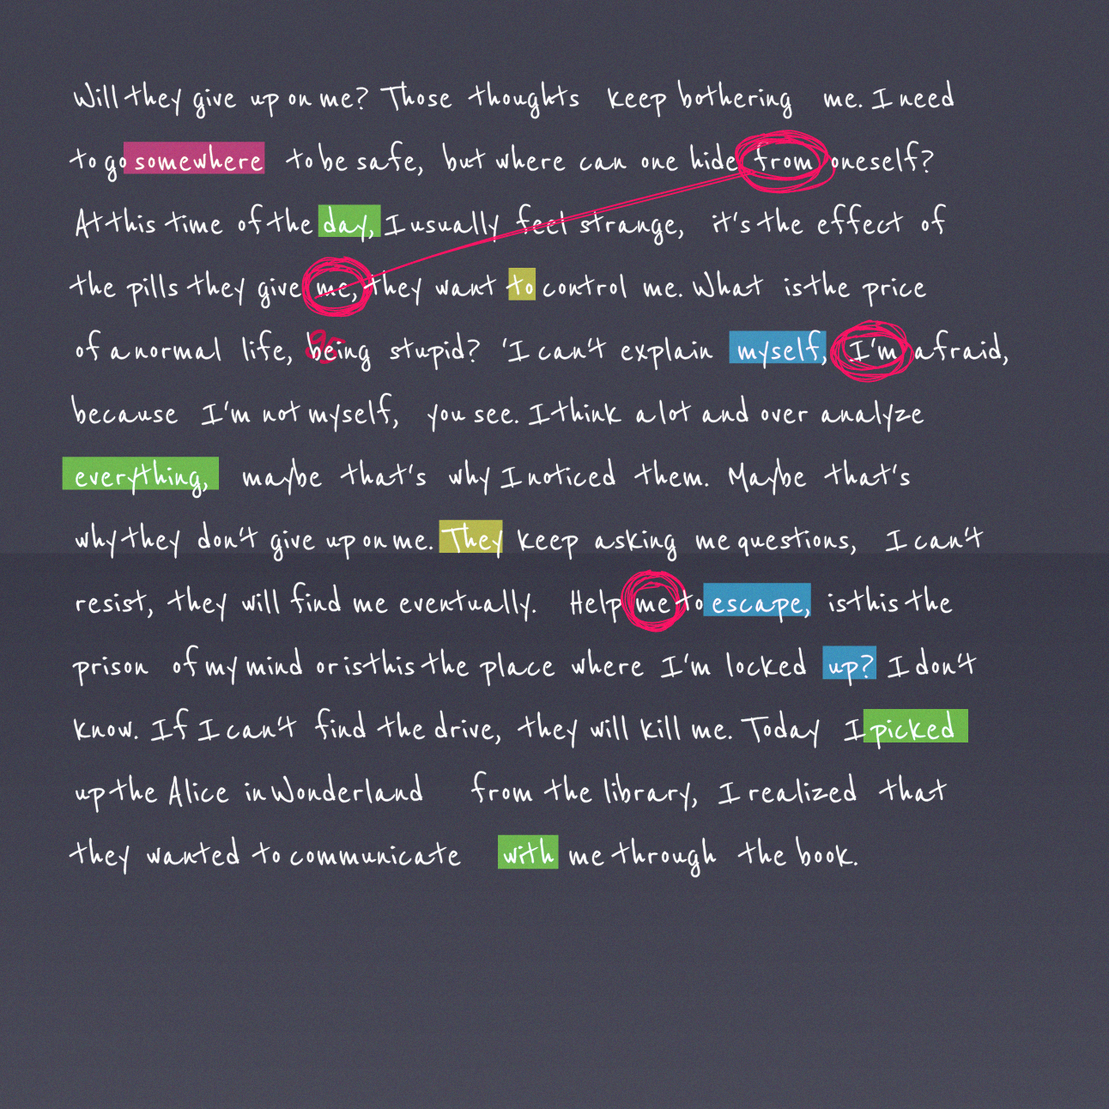 Will they give up on me? Those thoughts keep bothering me. I need
to go somewhere to be safe, but where can one hide from oneself?
At this time of the day, I usually feel strange, it's the effect of
the pills they give me, they want to control me. What is the price
of a normal life, being stupid? 'I can't explain myself, I'm afraid,
because I'm not myself, you see. I think a lot and over analyze
everything, maybe that's why I noticed them. Maybe that's
why they don't give up on me. They keep asking me questions, I can't
resist, they will find me eventually. Help me to escape, is this the
prison of my mind or is this the place where I'm locked up? I don't
know. If I can't find the drive, they will kill me. Today I picked
up the Alice in Wonderland from the library, I realized that
they wanted to communicate with me through the book.